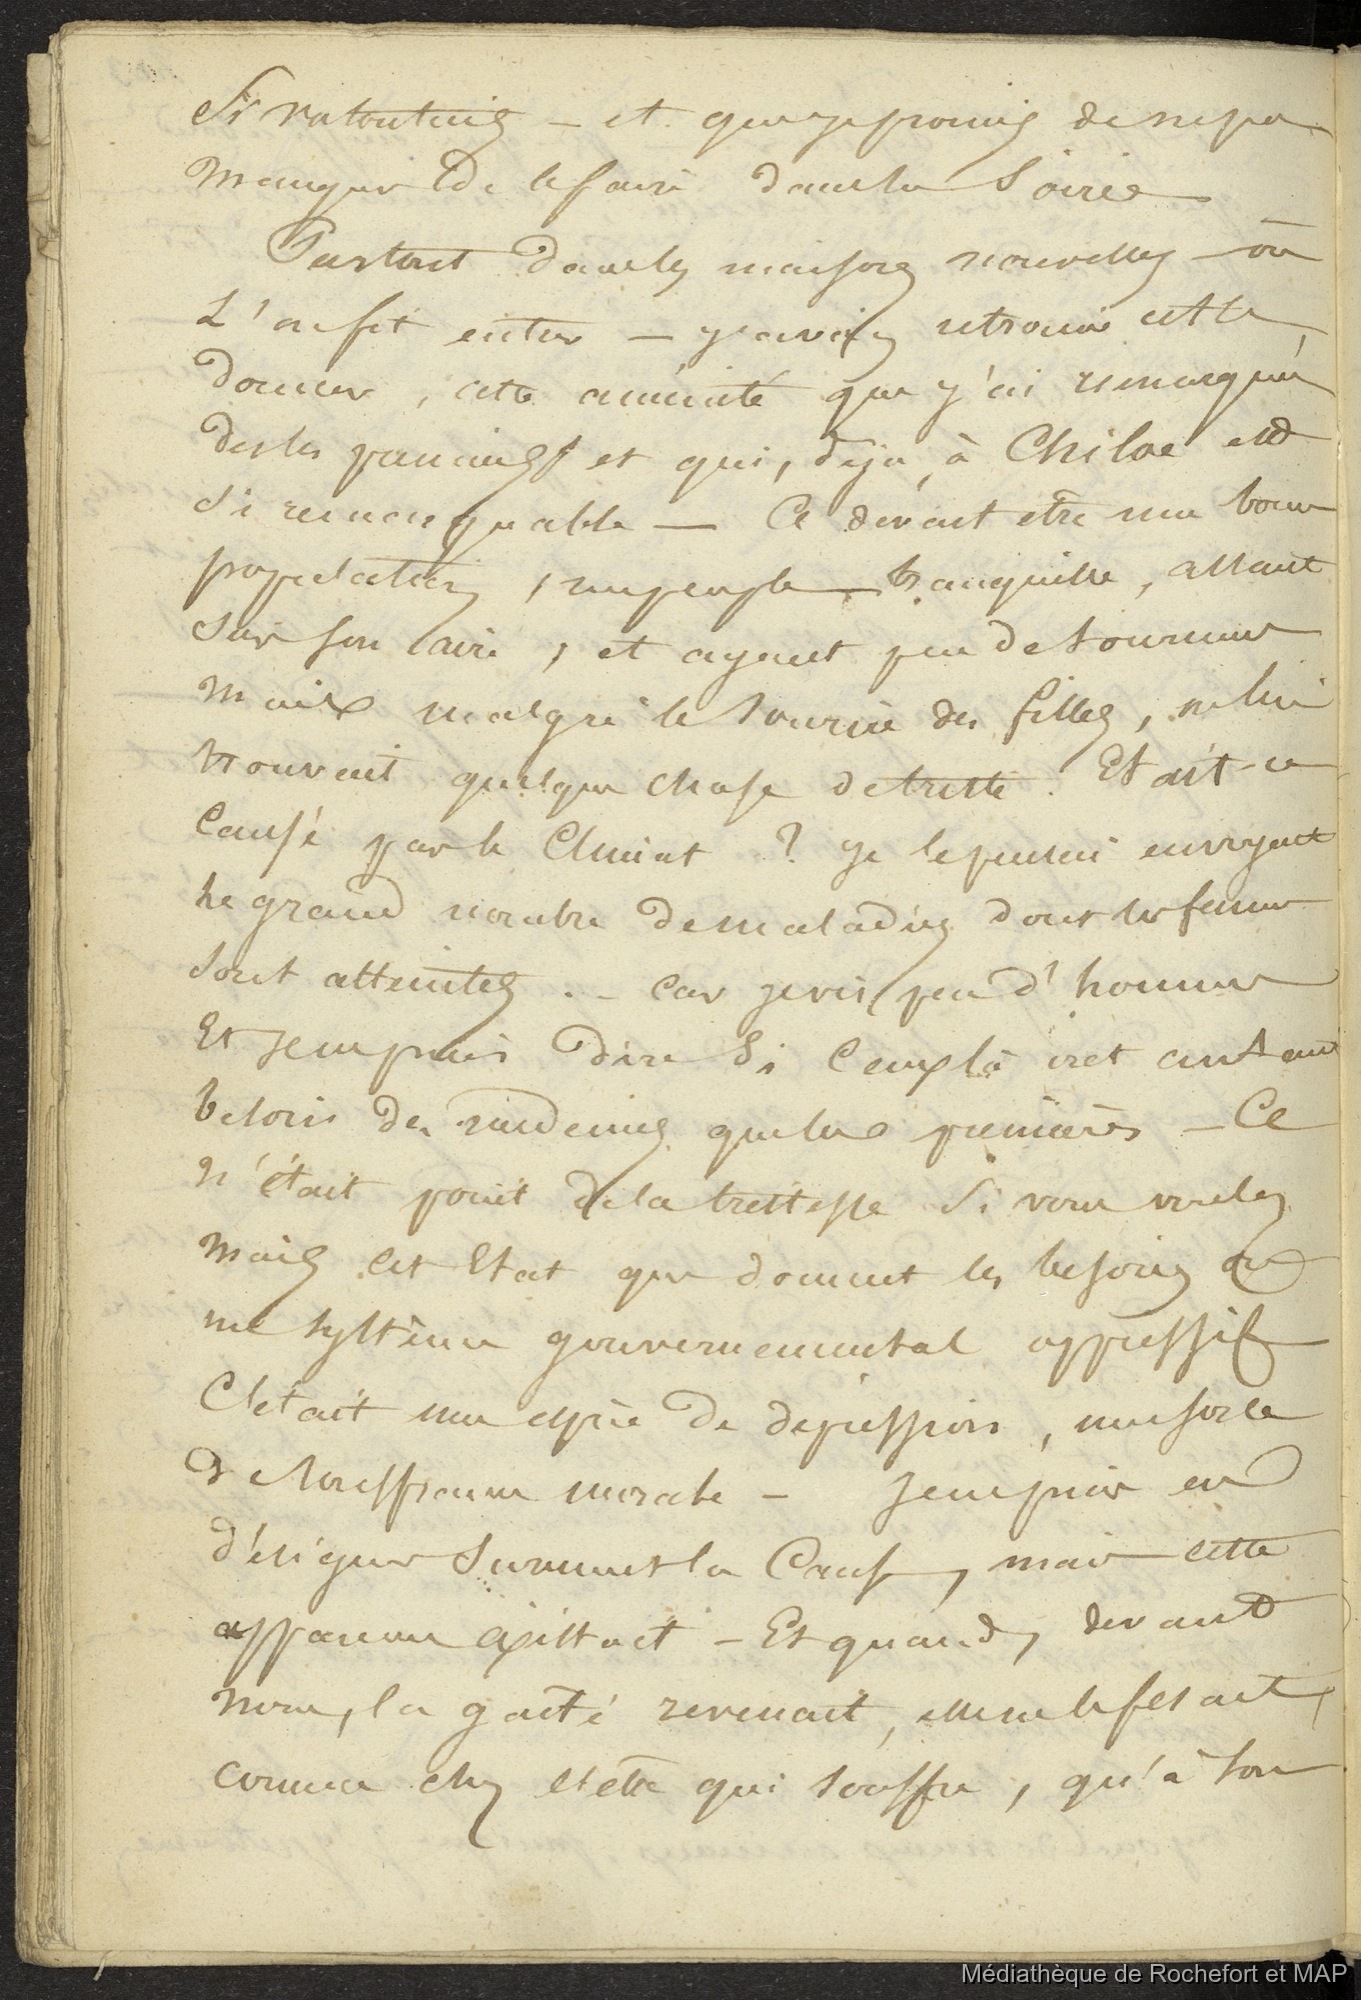 et que je promis de ne pas
manquer de le faire dans la Soirée
Partout dans les maisons nouvelles où
L'on fit entrer — j'avais retrouvé cette
douceur, cette aménité que j'ai remarquée
des les et qui, déja, à Chiloe est
Si remarquable — Ce devait etre une bonne
population, un peuple tranquille, allant
Sur son aire, et ayant peu de tournure
Mais malgré le Sourire des filles, on lui
trouvait quelque chose de triste. Etait-ce
Causé par le Climat ? je le pensai en voyant
Le grand nombre de maladies dont les femmes
Sont atteintes . – Car je vis peu d'hommes
Et je ne puis dire Si Ceux là ont autant
besoin de médecins que les premières — Ce
n'était point de la tristesse Si vous voulez
Mais cet Etat que donnent les besoins ou
un Système gouvernemental oppressif
C'était une espèce de dépression, une sorte
de Souffrance morale — Je ne puis en
désigner Surement la Cause, mais cette
apparence existait — Et quand, devant
nous, la gaité revenait, elle ne le fesait,
comme chez l'être qui Souffre, qu'à son